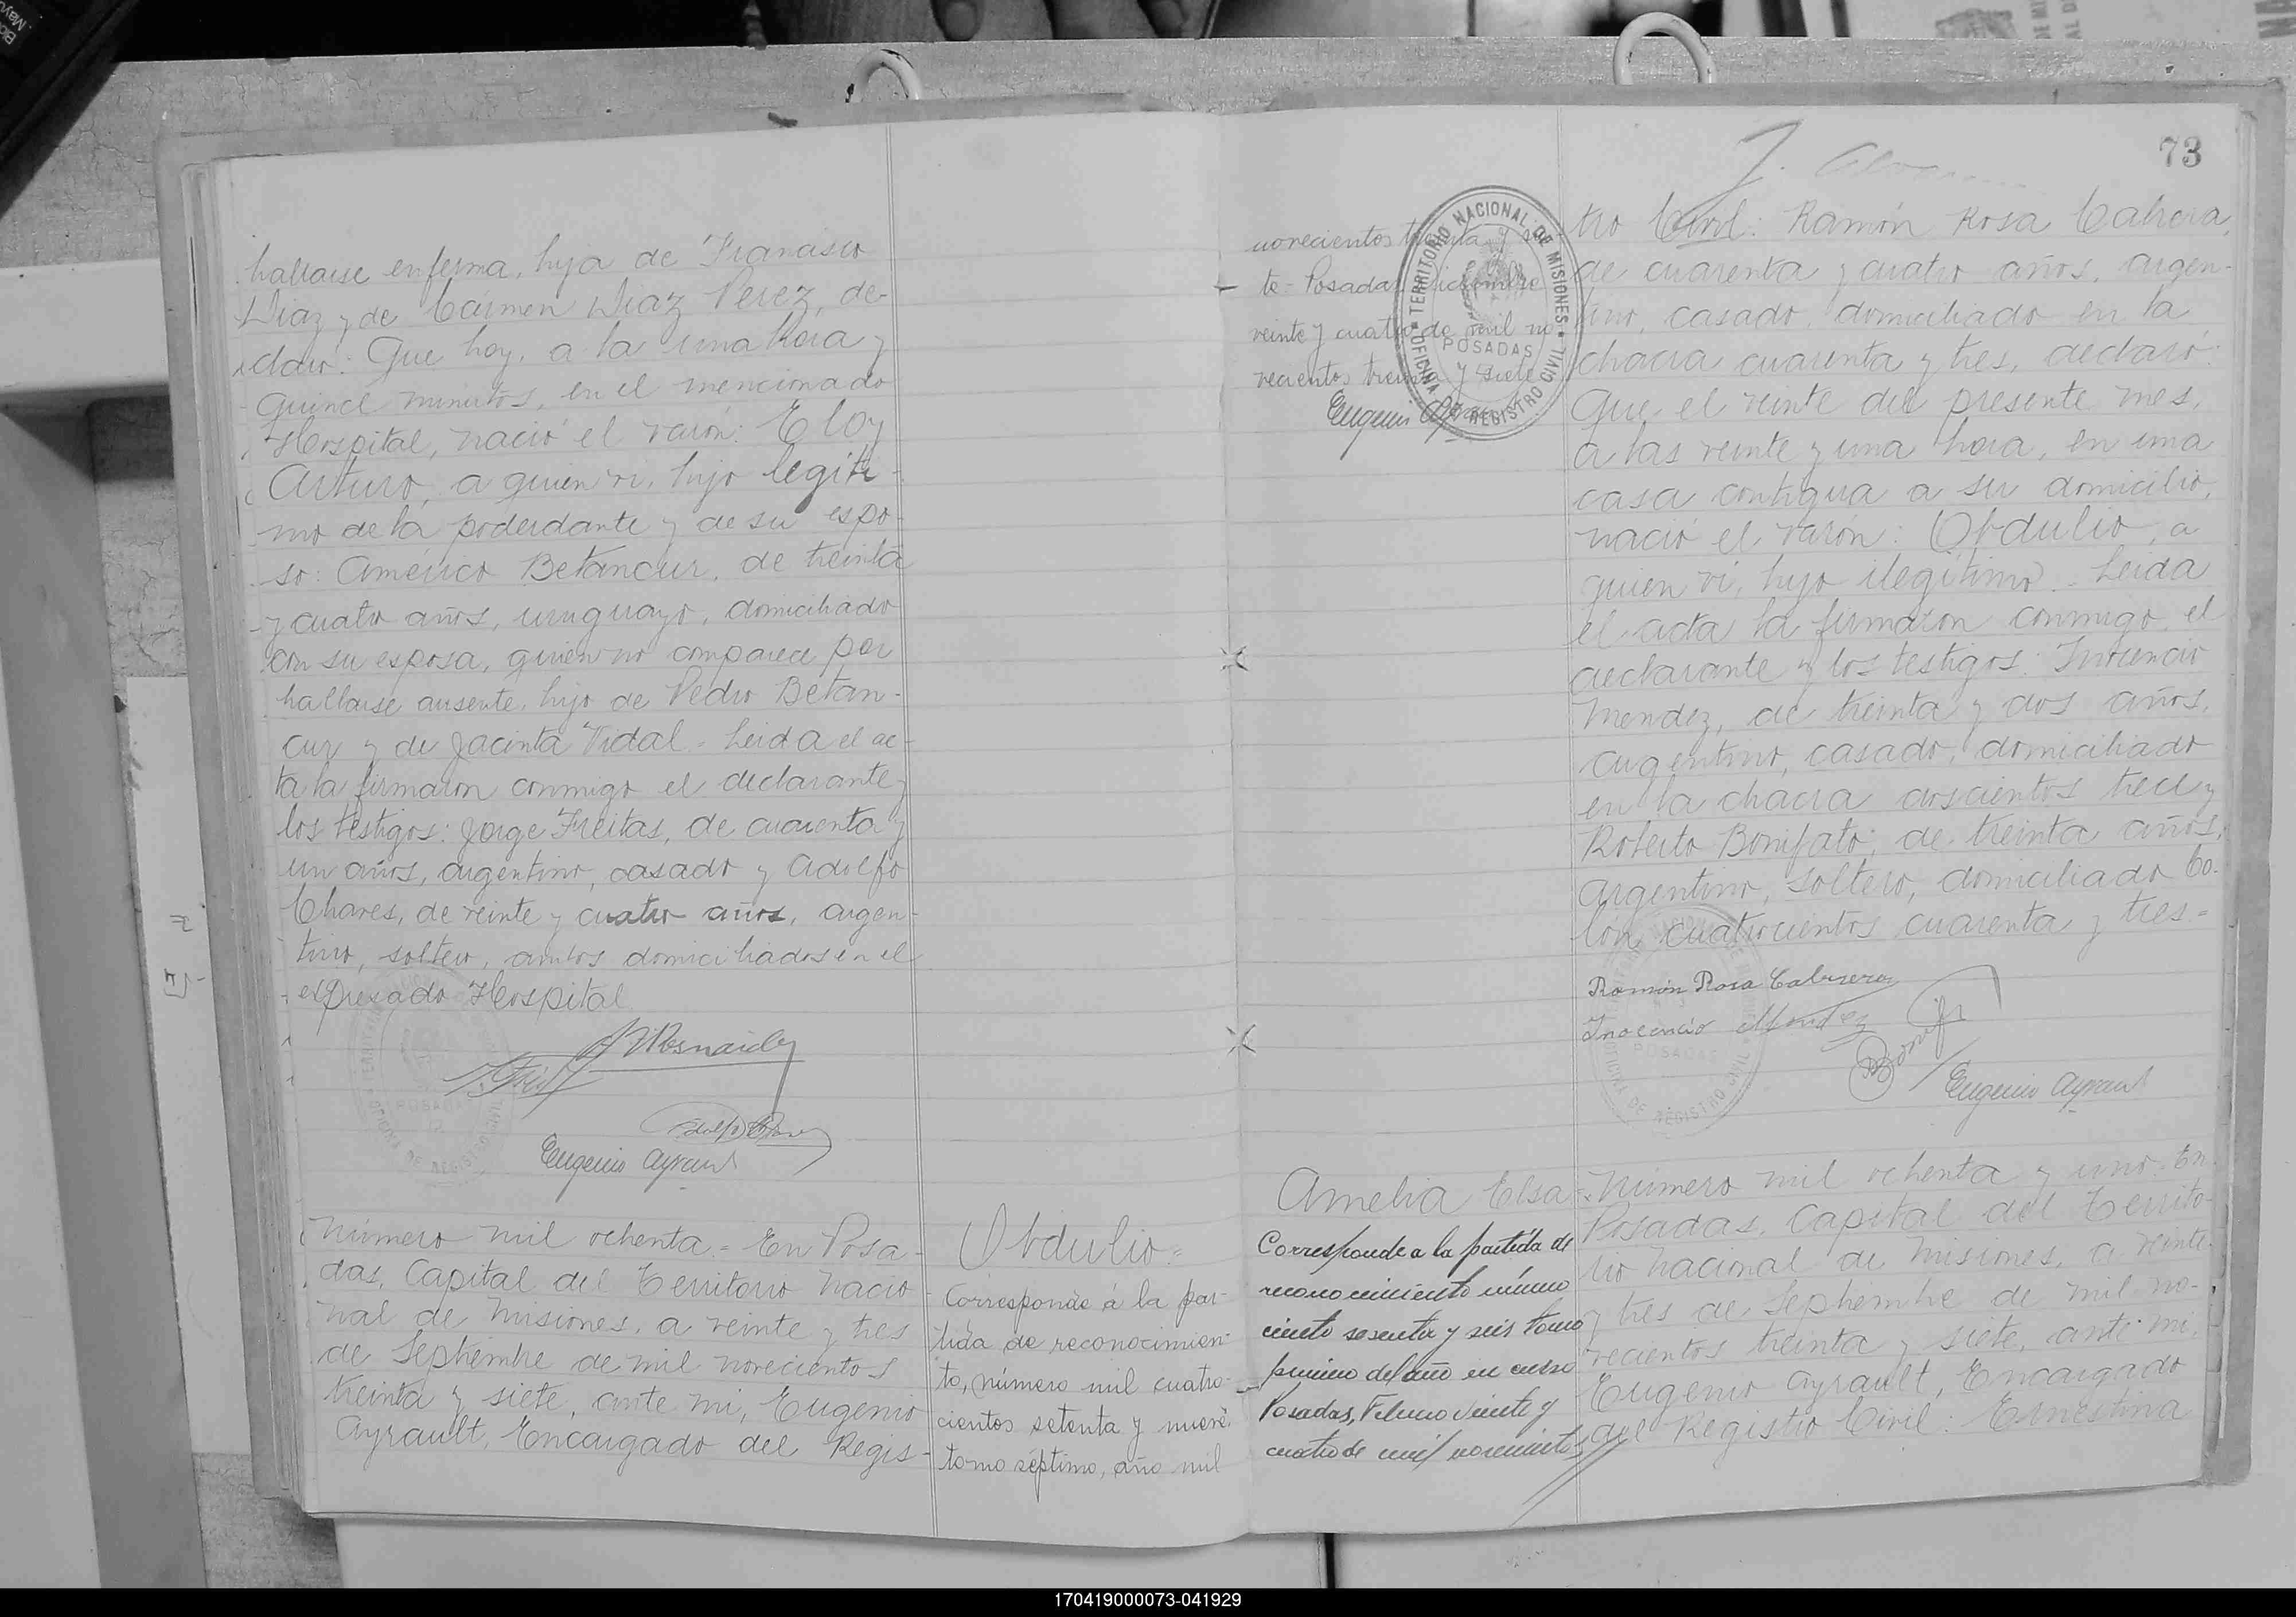 hallarse enferma, hija de Francisco
Diaz y de Cármen Diaz Perez, de-
claró: Que hoy, a la una hora y
quince minutos, en el mencionado
Hospital, nació el varón: Eloy
Arturo, a quien vi, hijo legíti-
mo de la poderdante y de su espo-
so: Américo Betancur, de treinta
y cuatro años, uruguayo, domiciliado
con su esposa, quien no comparece por
hallarse ausente, hijo de Pedro Betan-
cur y de Jacinta Vidal.- Leida el ac-
ta la firmaron conmigo el declarante y
los testigos: Jorge Freitas, de cuarenta y
un años, argentino, casado y Adolfo
Chaves, de veinte y cuatro años, argen-
tino, soltero, ambos domiciliados en el
expresado Hospital
Eugenio Ayrault
Número mil ochenta.- En Posa-
das, Capital del Territorio Nacio-
nal de Misiones, a veinte y tres
de Septiembre de mil novecientos
treinta y siete, ante mi, Eugenio
Ayrault, Encargado del Regis-
Obdulio=
Corresponde á la par-
tida de reconocimien-
to, número mil cuatro-
cientos setenta y nueve,
tomo séptimo, año mil
novecientos treinta y sie-
te- Posadas Diciembre
veinte y cuatro de mil no-
vecientos treinta y siete
Eugenio Ayrault
TERRITORIO NACIONAL DE MISIONES
POSADAS
OFICINA DE REGISTRO CIVIL
73
tro Civil: Ramón Rosa Cabrera,
de cuarenta y cuatro años, argen-
tino, casado, domiciliado en la
chacra cuarenta y tres, declaró:
Que el veinte del presente mes,
a las veinte y una hora, en una
casa contigua a su domicilio,
nació el varón: Obdulio, a
quien vi, hijo ilegítimo.- Leida
el acta la firmaron conmigo, el
declarante y los testigos: Inocencio
Mendez, de treinta y dos años,
argentino, casado, domiciliado
en la chacra doscientos trece y
Roberto Bonifato, de treinta años,
argentino, soltero, domiciliado Co-
lón cuatrocientos cuarenta y tres=
Ramón Rosa Cabrera
Inocencio Mendez
Eugenio Ayrault
Amelia Elsa=
Corresponde a la partida de
reconocimiento número
ciento sesenta y seis tomo
primero del año en curso
Posadas, Febrero veinte y
cuatro de mil novecientos
Número mil ochenta y uno.- En
Posadas, Capital del Territo-
rio Nacional de Misiones, a veinte
y tres de Septiembre de mil no-
vecientos treinta y siete, ante mi,
Eugenio Ayrault, Encargado
del Registro Civil: Ernestina
170419000073-041929